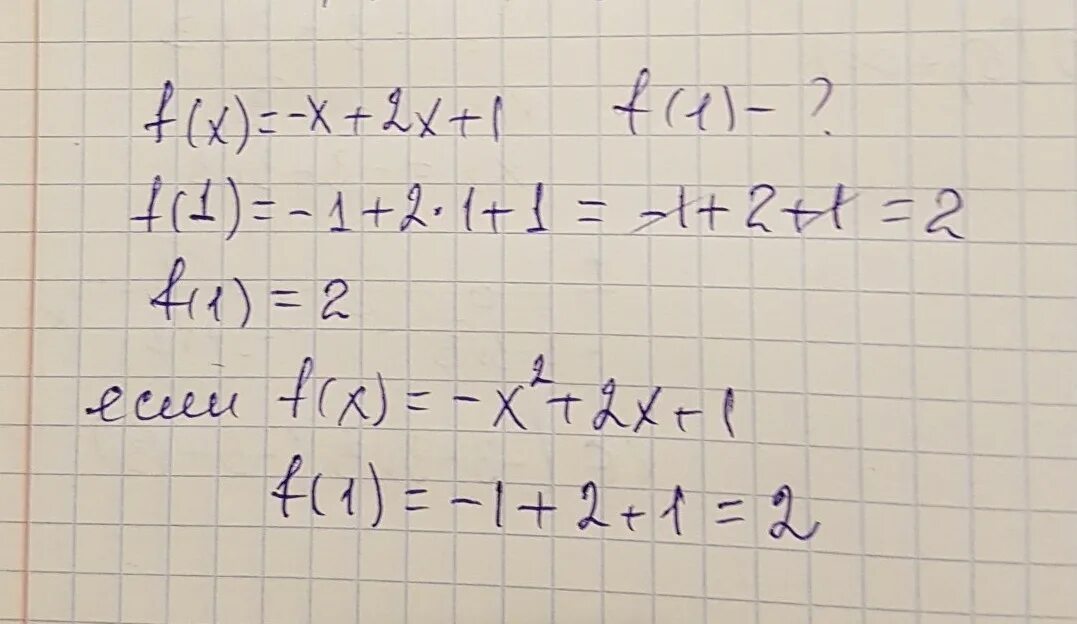 f(x)=-x+2x+1 f(1)-?
f(1)=-1+2·1+1=-1+2+1=2
f(1)=2
если f(x)=-x²+2x+1
f(1)=-1+2+1=2